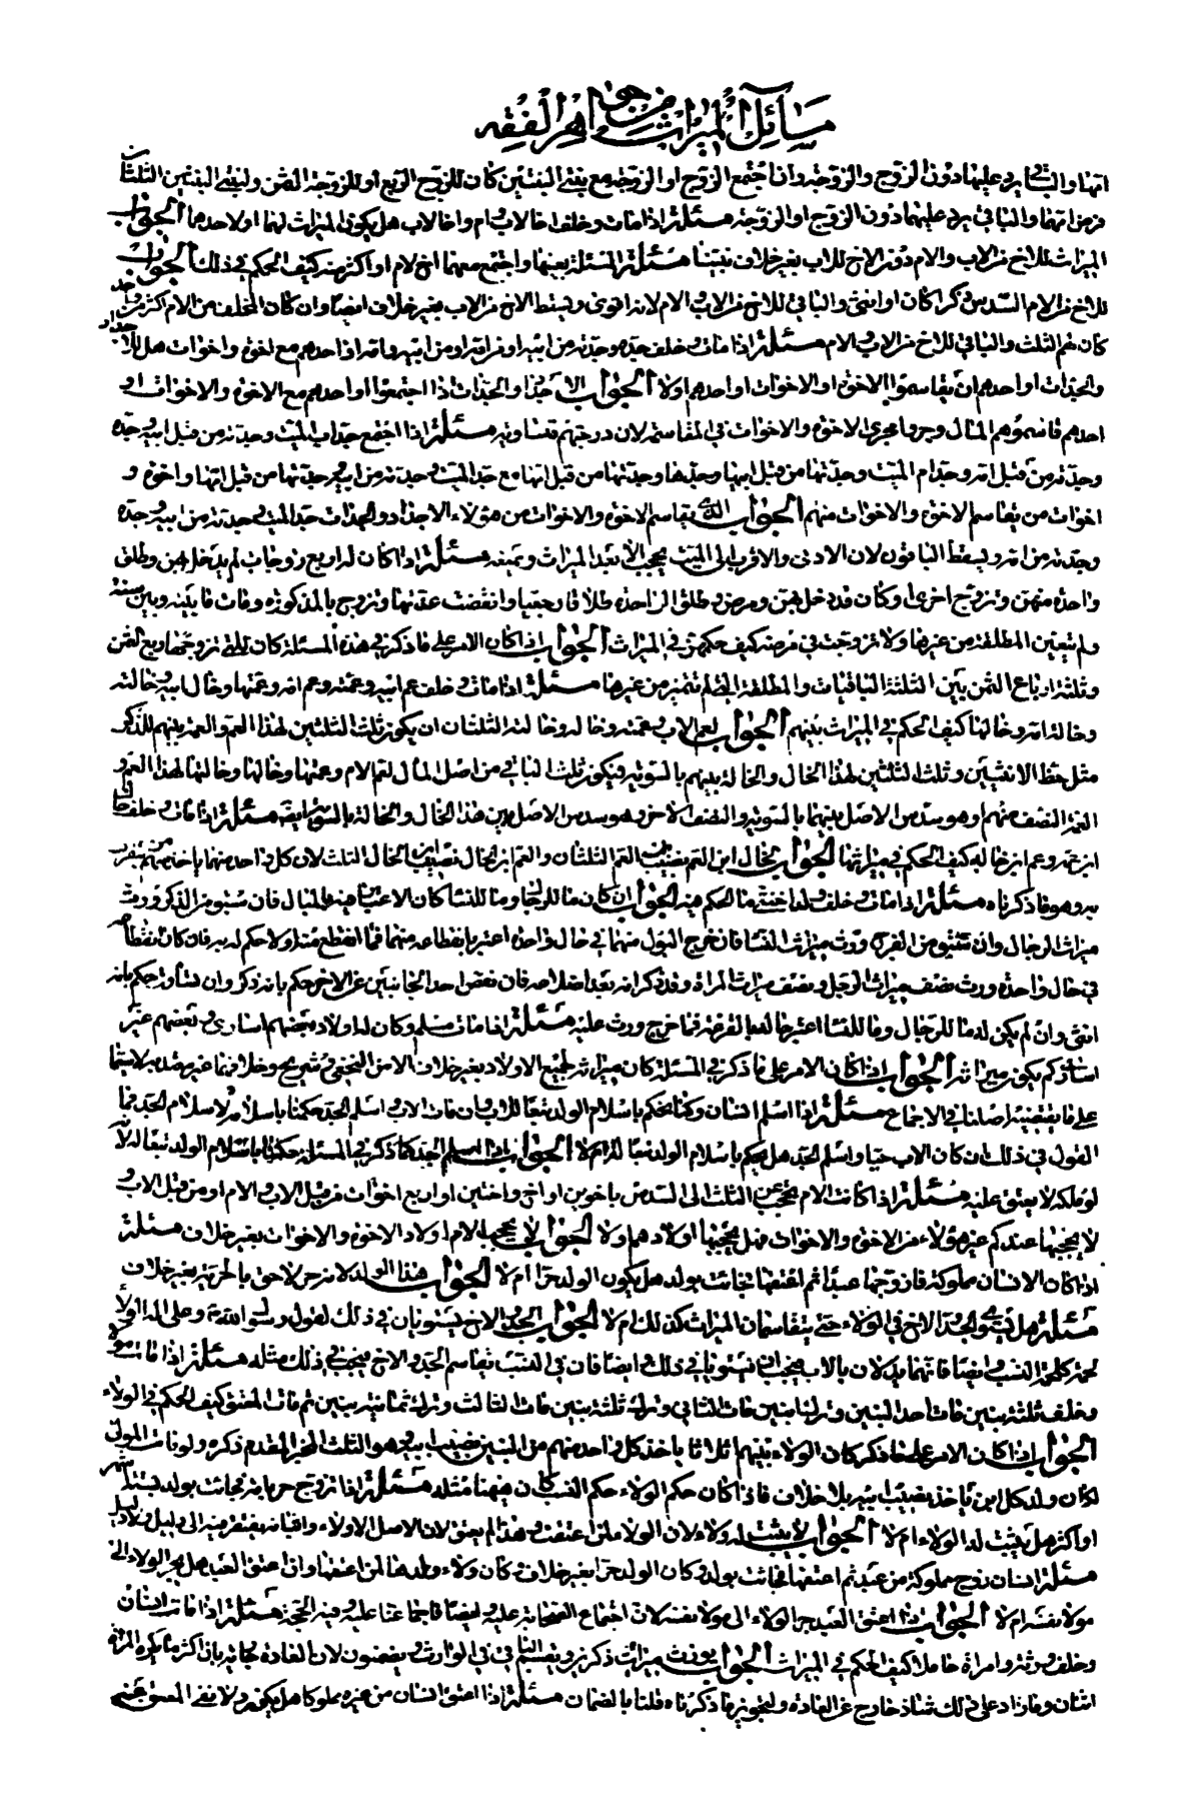 مسائل الميراث من جواهر الفقه
انها والباقي يرد عليهما دون الزوج والزوجة وان اجتمع الزوج او الزوجة مع بنتي البنتين كان للزوج الربع او للزوجة الثمن ولبنتي البنتين الثلثان
فرض امهما والباقي يرد عليهما دون الزوج او الزوجة مسئلة اذا مات وخلف اخا لاب وام واخا لاب هل يكون الميراث لهما او لاحدهما الجواب
الميراث للاخ من الاب والام دون الاخ للاب بغير خلاف بيننا مسئلة المسئلة بعينها واجتمع معهما اخ لام او اكثر منه كيف الحكم في ذلك الجواب
للاخ من الام السدس ذكرا كان او انثى والباقي للاخ من الاب والام لانه اقوى ويسقط الاخ من الاب بغير خلاف ايضا وان كان المخلف من الام اكثر من واحد
كان لهم الثلث والباقي للاخ من الاب والام مسئلة اذا مات وخلف جده وجدته من ابيه او من امه او من ابيه وامه او احدهم مع اخوة واخوات هل للاجداد
والجدات او احدهم ان يقاسموا الاخوة او الاخوات او احدهم او لا الجواب الاجداد والجدات اذا اجتمعوا او احدهم مع الاخوة والاخوات او
احدهم قاسموهم المال وجروا مجرى الاخوة والاخوات في المقاسمة لان درجتهم متساوية مسئلة اذا اجتمع جد اب الميت وجدته من قبل ابيه وجده
وجدته من قبل امه وجد ام الميت وجدتها من قبل ابيها وجدها وجدتها من قبل امها مع جد الميت وجدته من ابيه وجدته من قبل امها واخوة و
اخوات من يقاسم الاخوة والاخوات منهم الجواب الذي يقاسم الاخوة والاخوات من هؤلاء الاجداد والجدات جد الميت وجدته من ابيه وجده
وجدته من امه ويسقط الباقون لان الادنى والاقرب الى الميت يحجب الابعد الميراث ويمنعه مسئلة اذا كان له اربع زوجات لم يدخل بهن وطلق
واحدة منهن وتزوج اخرى او كان قد دخل بهن ومرض وطلق الواحدة طلاقا رجعيا وانقضت عدتها وتزوج بالمذكورة ومات فيما بينه وبين سنة
ولم تتعين المطلقة من غيرها ولا تزوجت في مرضه كيف حكمهن في الميراث الجواب اذا كان الامر على ما ذكر في هذه المسئلة كان للتي تزوجها ربع الثمن
وثلثة ارباع الثمن بين الثلثة الباقيات والمطلقة التي لم تتميز من غيرها مسئلة اذا مات وخلف عم ابيه وعمته وعم امه وعمتها وخال ابيه وخالته
وخال امه وخالتها كيف الحكم في الميراث بينهم الجواب لعم الاب وعمته وخاله وخالته الثلثان ان يكون ثلث الثلثين لهذا العم والعمة بينهم للذكر
مثل حظ الانثيين وثلث الثلثين لهذا الخال والخالة بينهم بالسوية ويكون ثلث الباقي من اصل المال لعم الام وعمتها وخالها وخالتها لهذا العم و
العمة النصف منهم وهو سدس الاصل بينهما بالسوية والنصف الاخر وهو سدس الاصل بين هذا الخال والخالة بالسوية ايضا مسئلة اذا مات وخلف
ابن عمه وعم ابن خاله كيف الحكم في ميراثها الجواب لخال ابن العم نصيب العم الثلثان والعم ابن الخال نصيب الخال الثلث لان كل واحد منهما ياخذ نصيب من يتقرب
به وهو ما ذكرناه مسئلة اذا مات وخلف ولدا خنثى ما الحكم فيه الجواب ان كان ما للرجال وما للنساء كان الاعتبار فيه بالمبال فان سبق من الذكر ورث
ميراث الرجال وان سبق من الفرج ورث ميراث النساء فان خرج البول منهما في حال واحدة اعتبر بانقطاعه منهما فما انقطع منه اولا حكم له به فان كان انقطاعه
في حال واحدة ورث نصف ميراث الرجل ونصف ميراث المراة وقد ذكر انه يعد اضلاعه فان نقص احد الجانبين عن الاخر حكم بانه ذكر وان تساوت حكم بانه
انثى وان لم يكن له ما للرجال وما للنساء اعتبر حاله بالقرعة فما خرج ورث عليه مسئلة اذا مات مسلم وكان له اولاد بعضهم اسارى وبعضهم غير
اسارى كم يكون ميراثه الجواب اذا كان الامر على ما ذكر في المسئلة كان ميراثه لجميع الاولاد بغير خلاف الا من النخعي وشريح وخلافهما غير معتد به لاسيما
على ما يقتضيه اصلنا في الاجماع مسئلة اذا اسلم انسان وكنا نحكم باسلام الولد تبعا للاب وان مات الاب واسلم الجد حكمنا باسلامه لاسلام الجد فما
القول في ذلك ان كان الاب حيا واسلم الجد هل يحكم باسلام الولد تبعا له ام لا الجواب اذا اسلم الجد كما ذكر في المسئلة حكمنا باسلام الولد تبعا له لانه
لو ملكه لا يعتق عليه مسئلة اذا كانت الام تحجب عن الثلث الى السدس باخوين او اخ واختين او اربع اخوات من قبل الاب والام او من قبل الاب و
لا يحجبها عندكم غير هؤلاء من الاخوة والاخوات فهل يحجبها اولادهم او لا الجواب لا يحجب الام اولاد الاخوة والاخوات بغير خلاف مسئلة
اذا كان لانسان مملوكة فزوجها عبدا ثم اعتقها فجائت بولد هل يكون الولد حرا ام لا الجواب هذا الولد لا من حر لاحق بالحرية بغير خلاف
مسئلة هل يستوي الجد والاخ في الولاء حتى يتقاسمان الميراث كذلك ام لا الجواب الجد والاخ يستويان في ذلك لقول رسول الله ص وعلى اله الولاء
لحمة كلحمة النسب وايضا فانهما يدلان بالاب فيجب ان يستويا في ذلك وايضا فان في النسب يقاسم الجد والاخ فيجب في ذلك مثله مسئلة اذا مات
وخلف ثلثة بنين فمات احد البنين وترك ابنين فمات الثاني وترك ثلثة بنين فمات الثالث وترك ثمانية بنين ثم مات المعتق كيف الحكم في الولاء
الجواب اذا كان الامر على ما ذكر كان الولاء بينهم اثلاثا ياخذ كل واحد منهم من البنين نصيب ابيه وهو الثلث للخبر المقدم ذكره ولو مات المولى
لكان ولد كل ابن ياخذ نصيب ابيه بلا خلاف فاذا كان حكم الولاء حكم النسب كان فيهما مثله مسئلة اذا تزوج حر بامة فجائت بولد لستة اشهر
او اكثر هل يثبت له الولاء ام لا الجواب لا يثبت له ولاء لان الولاء لمن اعتق وهذا لم يعتق لان الاصل لا ولاء واثباته يفتقر فيه الى دليل ولا دليل
مسئلة انسان زوج مملوكته من عبد ثم اعتقها فجائت بولد وكان الولد حرا بغير خلاف وكان ولاء ولدها لمن اعتقها واذا اعتق العبد هل يجر الولاء الى
مولا نفسه ام لا الجواب اذا اعتق العبد جر الولاء الى مولا نفسه لان اجتماع الصحابة عليه وايضا فاجماعنا عليه وفيه الحجة مسئلة اذا مات انسان
وخلف ورثة وامراة حاملا كيف الحكم في الميراث الجواب يوزن ميراث ذكرين ويقسم الباقي في الوارث ويضمنون لان العادة جارية بان اكثر ما تلده المراة
اثنان وما زاد على ذلك شاذ خارج عن العادة ولتجويز ما ذكرناه قلنا بالضمان مسئلة اذا اعتق انسان من غيره مملوكا هل يكون ولائه للمعتق عنه